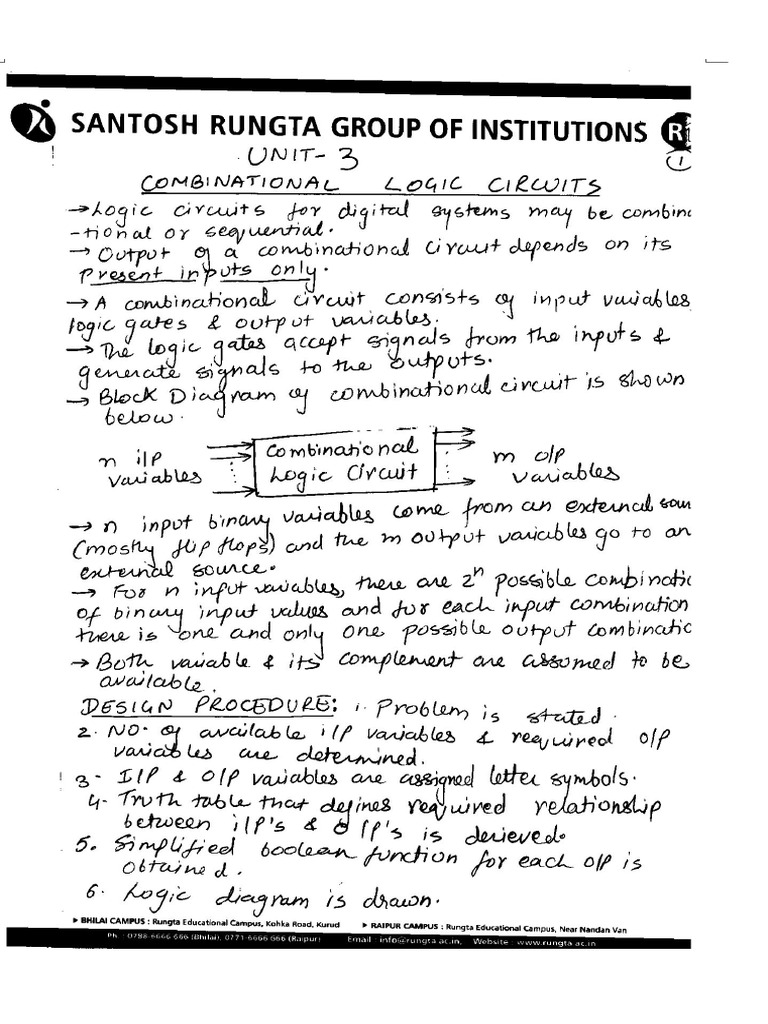 SANTOSH RUNGTA GROUP OF INSTITUTIONS R
UNIT-3
1
COMBINATIONAL LOGIC CIRCUITS
→ Logic circuits for digital systems may be combina
-tional or sequential.
→ Output of a combinational circuit depends on its
present inputs only.
→ A combinational circuit consists of input variables
logic gates & output variables.
→ The logic gates accept signals from the inputs &
generate signals to the outputs.
→ Block Diagram of combinational circuit is shown
below.
n i/p variables
Combinational Logic Circuit
m o/p variables
→ n input binary variables come from an external sour
(mostly flip flops) and the m output variables go to an
external source.
→ For n input variables, there are 2ⁿ possible combinatic
of binary input values and for each input combination
there is one and only one possible output combinatic
→ Both variable & its complement are assumed to be
available.
DESIGN PROCEDURE: 1. Problem is stated.
2. NO. of available i/p variables & required o/p
variables are determined.
3- I/P & O/P variables are assigned letter symbols.
4- Truth table that defines required relationship
between i/p's & o/p's is derieved.
5. Simplified boolean function for each o/p is
obtained.
6. Logic diagram is drawn.
▸ BHILAI CAMPUS : Rungta Educational Campus, Kohka Road, Kurud ▸ RAIPUR CAMPUS : Rungta Educational Campus, Near Nandan Van
Ph. : 0788-6666 666 (Bhilai), 0771-6666 666 (Raipur) Email : info@rungta.ac.in, Website : www.rungta.ac.in